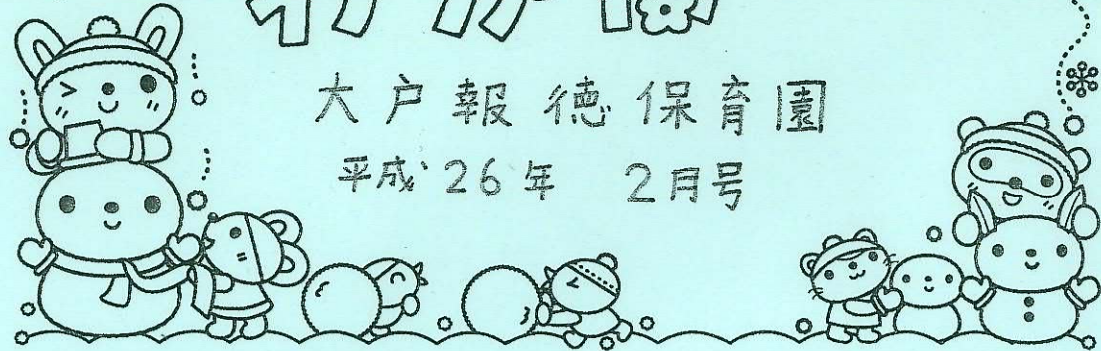 大戸報徳保育園
平成26年 2月号